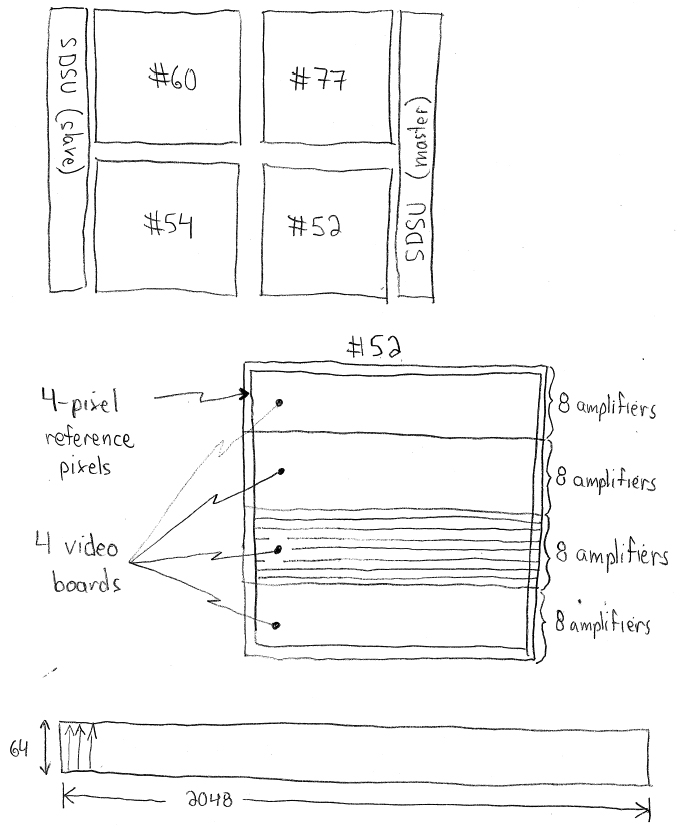 SDSU (slave)
#60
#77
SDSU (master)
#54
#52
#52
4-pixel
reference
pixels
8 amplifiers
8 amplifiers
4 video
boards
8 amplifiers
8 amplifiers
64
2048